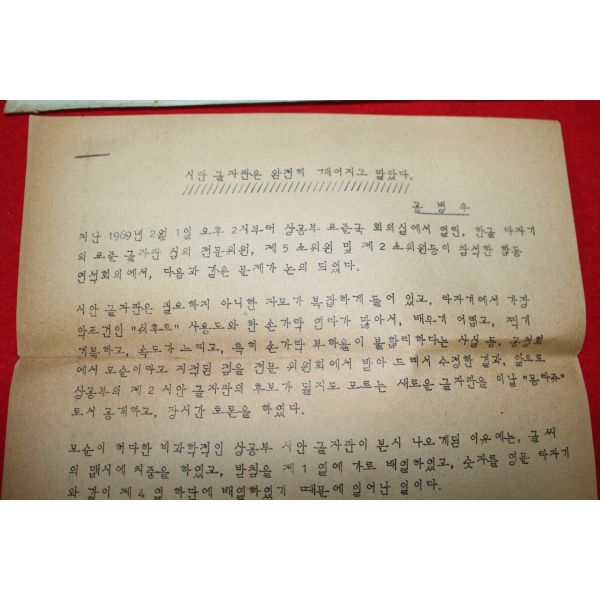 시안 글자판은 완전히 깨어지고 말았다.
공 병 우
지난 1969년 2월 1일 오후 2시부터 상공부 표준국 회의실에서 열린, 한글 타자기
의 표준 글자판 심의 전문위원, 제 5 소위원 및 제 2 소위원등이 참석한 합동
연석회의에서, 다음과 같은 문제가 논의 되었다.
시안 글자판은 필요하지 아니한 자모가 복잡하게 들어 있고, 타자기에서 가장
악조건인 "쉬후트" 사용도와 한 손가락 연타가 많아서, 배우기 어렵고, 찍기
거북하고, 속도가 느리고, 특히 손가락 부하율이 불합리하다는 사실 등, 공청회
에서 모순이라고 지적된 점을 전문 위원회에서 받아 드려서 수정한 결과, 앞으로
상공부의 제 2 시안 글자판의 후보가 될지도 모르는 새로운 글자판을 이날 "몽타쥬"
로서 공개하고, 장시간 토론을 하였다.
모순이 허다한 비과학적인 상공부 시안 글자판이 본시 나오게된 이유에는, 글씨
의 맵시에 치중을 하였고, 받침을 제 1 열에 가로 배열하였고, 숫자를 영문 타자기
와 같이 제 4 열 하단에 배열하였기 때문에 일어난 일이다.